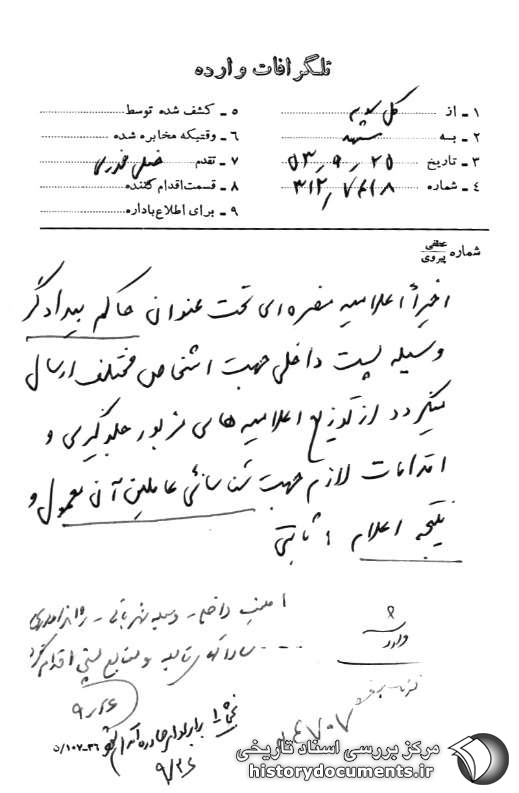 تلگرافات وارده
۱ ـ از کل سوم
۲ ـ به مشهد
۳ ـ تاریخ ۵۳٫۹٫۲۵
۴ ـ شماره ۳۱۲٫۷۴۱۸
۵ ـ کشف شده توسط
۶ ـ وقتیکه مخابره شده
۷ ـ تقدم خیلی فوری
۸ ـ قسمت اقدام کننده
۹ ـ برای اطلاع باداره
شماره عطفی پیروی
اخیراً اعلامیه مضره‌ای تحت عنوان حاکم بیدادگر
وسیله پست داخلی جهت اشخاص مختلف ارسال
میگردد از توزیع اعلامیه های مزبور جلوگیری و
اقدامات لازم جهت شناسائی عاملین آن معمول و
نتیجه اعلام ، ثابتی
امنیت داخلی ـ وسیله شهربانی ـ ژاندارمری
اقدام
۹٫۲۶
۹٫۲۶
مرکز بررسی اسناد تاریخی
historydocuments.ir